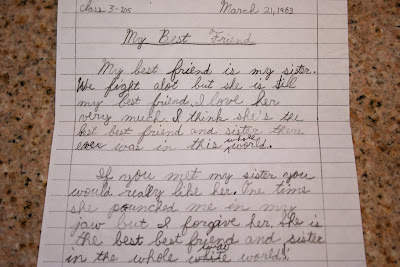 Class 3-205 March 21, 1963
My Best Friend
My best friend is my sister.
We fight alot but she is still
my best friend. I love her
very much. I think she's the
best best friend and sister there
ever was in this whole world.
If you met my sister you
would really like her. One time
she pounched me in my
jaw but I forgive her. She is
the best best friend and sister
in the whole wide world.